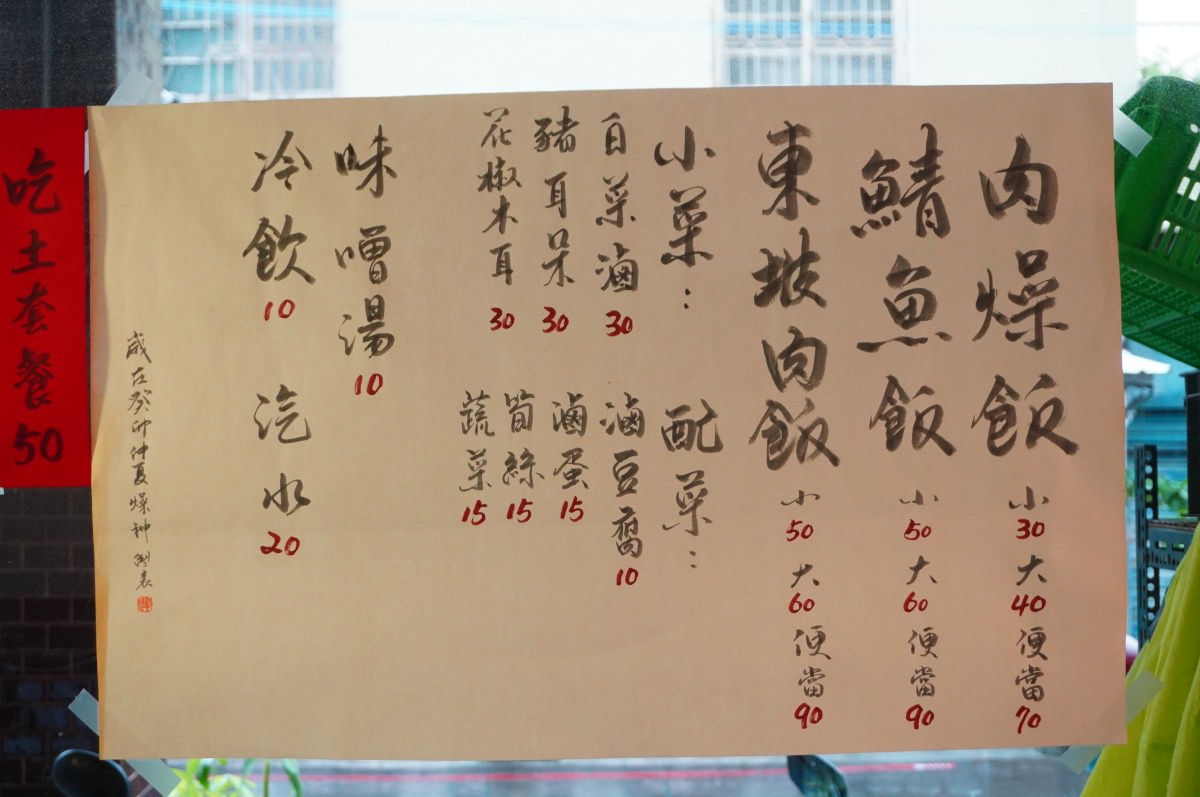 肉燥飯 小30 大40 便當70
鯖魚飯 小50 大60 便當90
東坡肉飯 小50 大60 便當90
小菜： 配菜：
白菜滷30 滷豆腐10
豬耳朵30 滷蛋15
花椒木耳30 筍絲15
蔬菜15
味噌湯10
冷飲10 汽水20
歲在癸卯仲夏燥神 製表
吃土套餐50